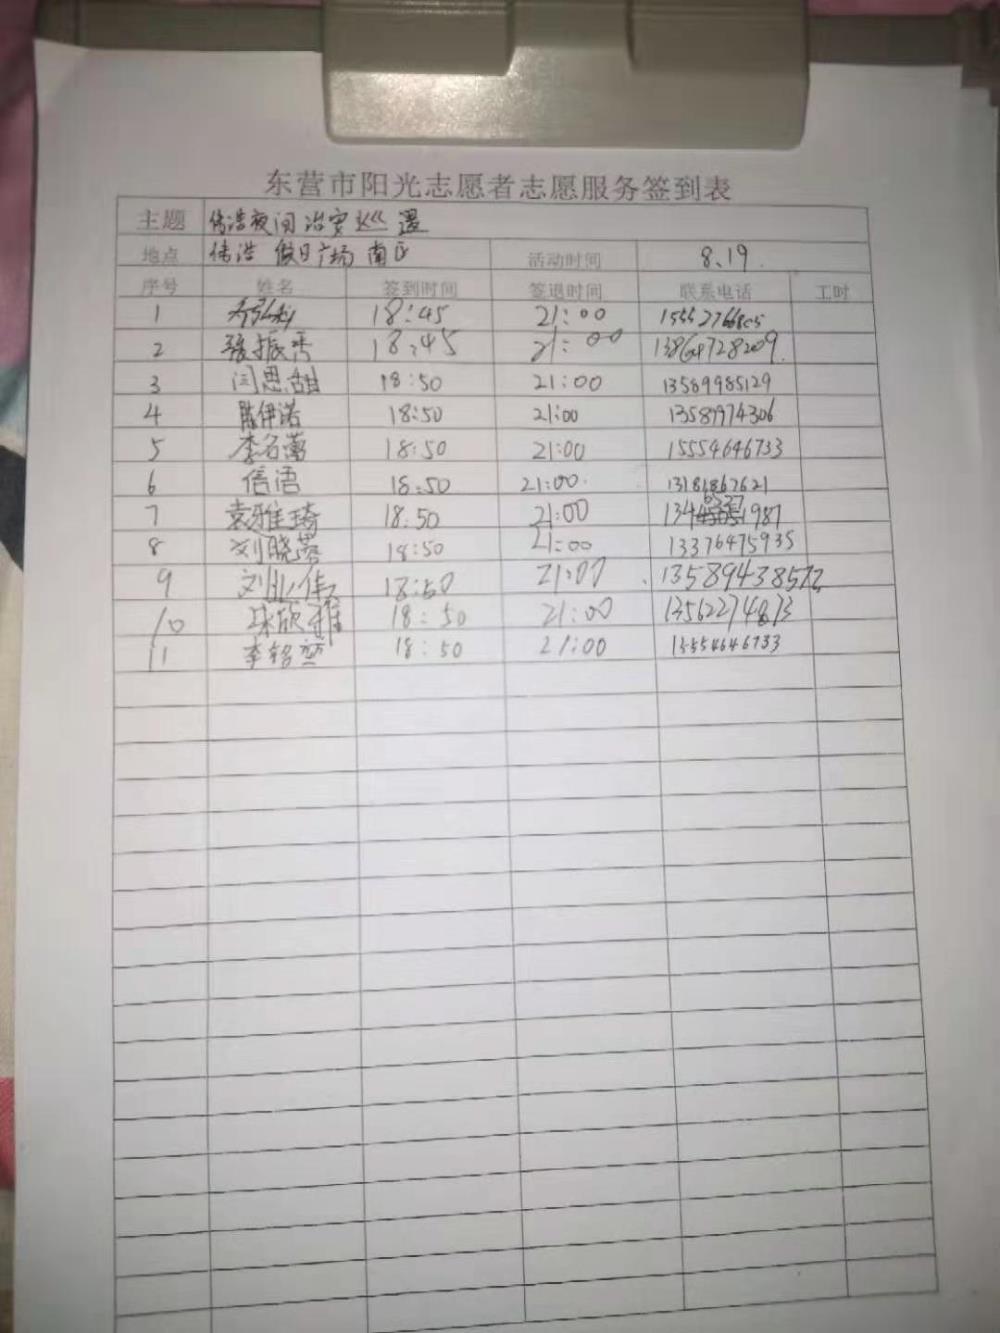 东营市阳光志愿者志愿服务签到表
主题 伟浩夜间治安巡逻
地点 伟浩 假日广场 南区 活动时间 8.19.
序号 姓名 签到时间 签退时间 联系电话 工时
1 18:45 21:00
2 张振秀 18:45 21:00
3 闫思甜 18:50 21:00 13589985129
4 陈伊诺 18:50 21:00 13589974306
5 李名蕾 18:50 21:00 15554646733
6 信语 18:50 21:00 13181867621
7 袁雅琦 18:50 21:00
8 刘晓蓉 18:50 21:00 13376475935
9 18:50 21:00
10 18:50 21:00 13562274873
11 李铭 18:50 21:00 15554646733